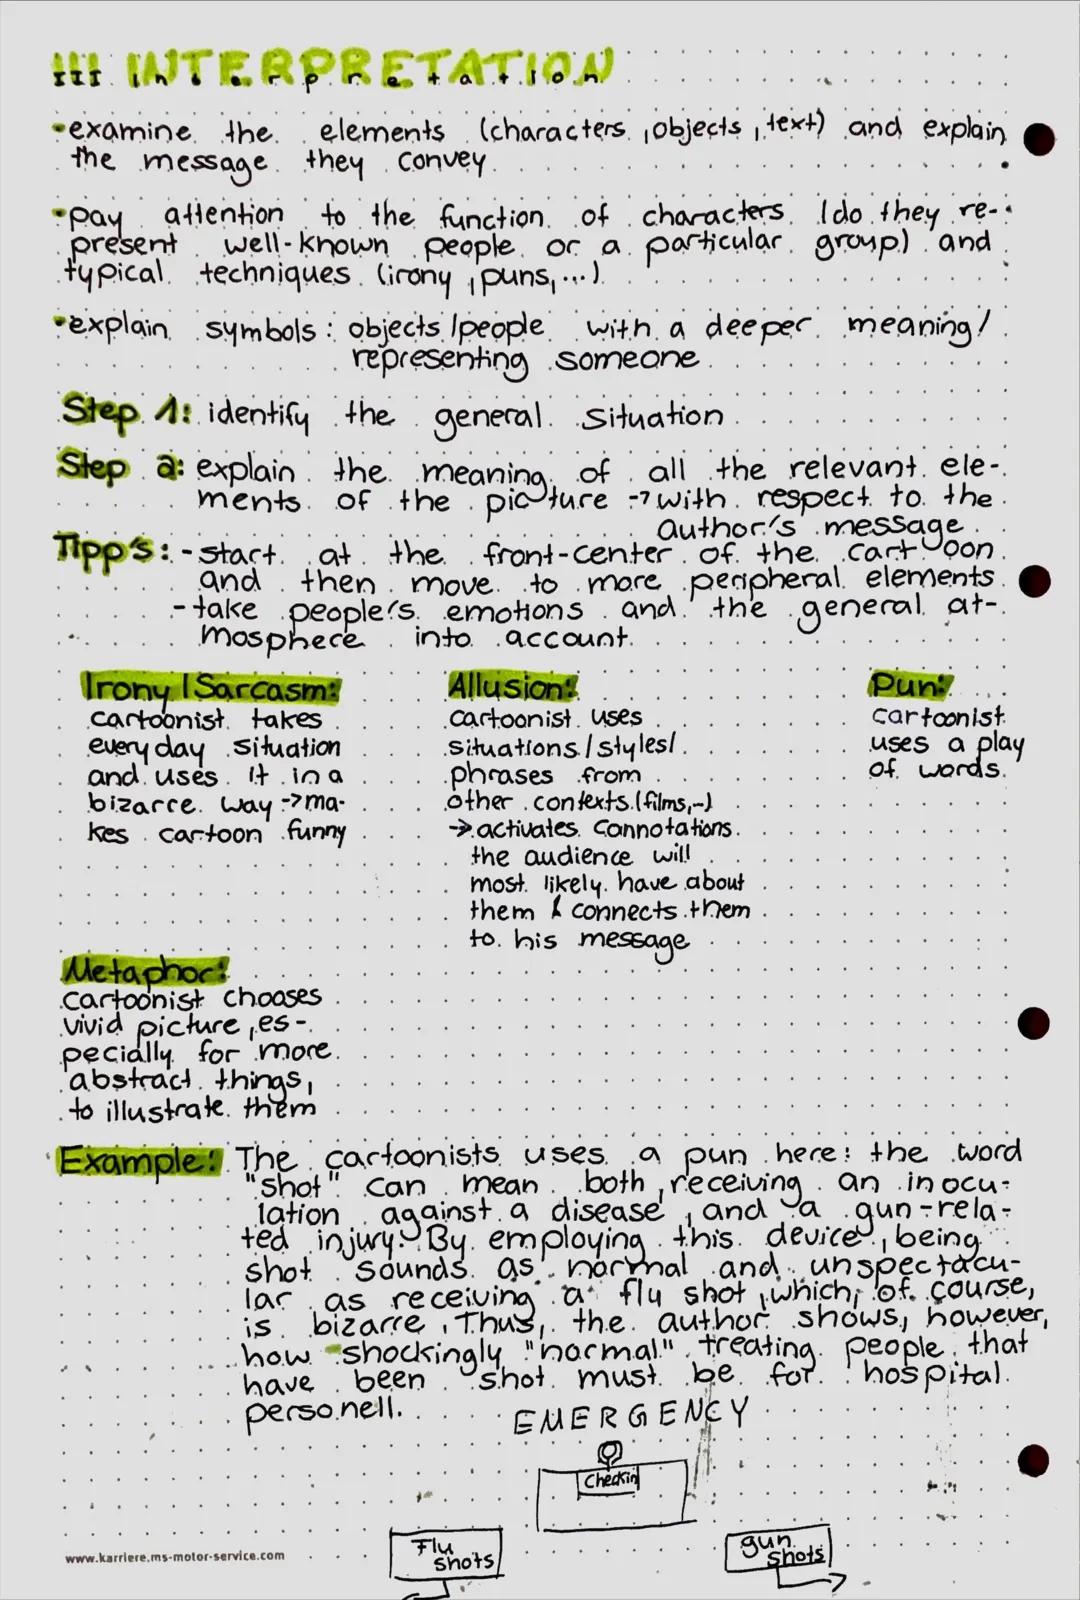 III INTERPRETATION
III Interpretation
•examine the elements (characters, objects, text) and explain
the message they convey
•pay attention to the function of characters (do they re-
present well-known people or a particular group) and
typical techniques (irony, puns,...)
•explain symbols: objects/people with a deeper meaning/
representing someone
Step 1: identify the general situation
Step 2: explain the meaning of all the relevant ele-
ments of the picture → with respect to the
author's message
Tipp's: - start at the front-center of the cartoon
and then move to more peripheral elements
- take people's emotions and the general at-
mosphere into account
Irony/Sarcasm:
cartoonist takes
everyday situation
and uses it in a
bizarre way → ma-
kes cartoon funny
Allusion:
cartoonist uses
situations/styles/
phrases from
other contexts (films,...)
→ activates connotations
the audience will
most likely have about
them & connects them
to his message
Pun:
cartoonist
uses a play
of words.
Metaphor:
cartoonist chooses
vivid picture, es-
pecially for more
abstract things,
to illustrate them
Example: The cartoonists uses a pun here: the word
"shot" can mean both, receiving an inocu-
lation against a disease, and a gun-rela-
ted injury. By employing this device, being
shot sounds as normal and unspectacu-
lar as receiving a flu shot, which, of course,
is bizarre. Thus, the author shows, however,
how shockingly "normal" treating people that
have been shot must be for hospital
personell.
EMERGENCY
Checkin
flu
shots
gun
shots
www.karriere.ms-motor-service.com